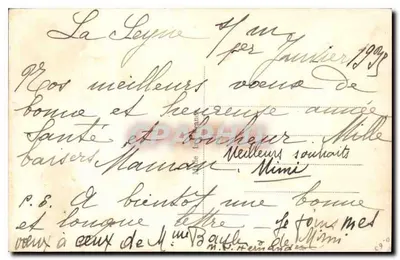 La Seyne s/m
1er Janvier 1935
Nos meilleurs voeux de
bonne et heureuse année
Santé et bonheur. Mille
baisers Maman Meilleurs souhaits
Mimi
P.S. A bientôt une bonne
et longue lettre – Je joins mes
voeux à ceux de Mme de Mimi